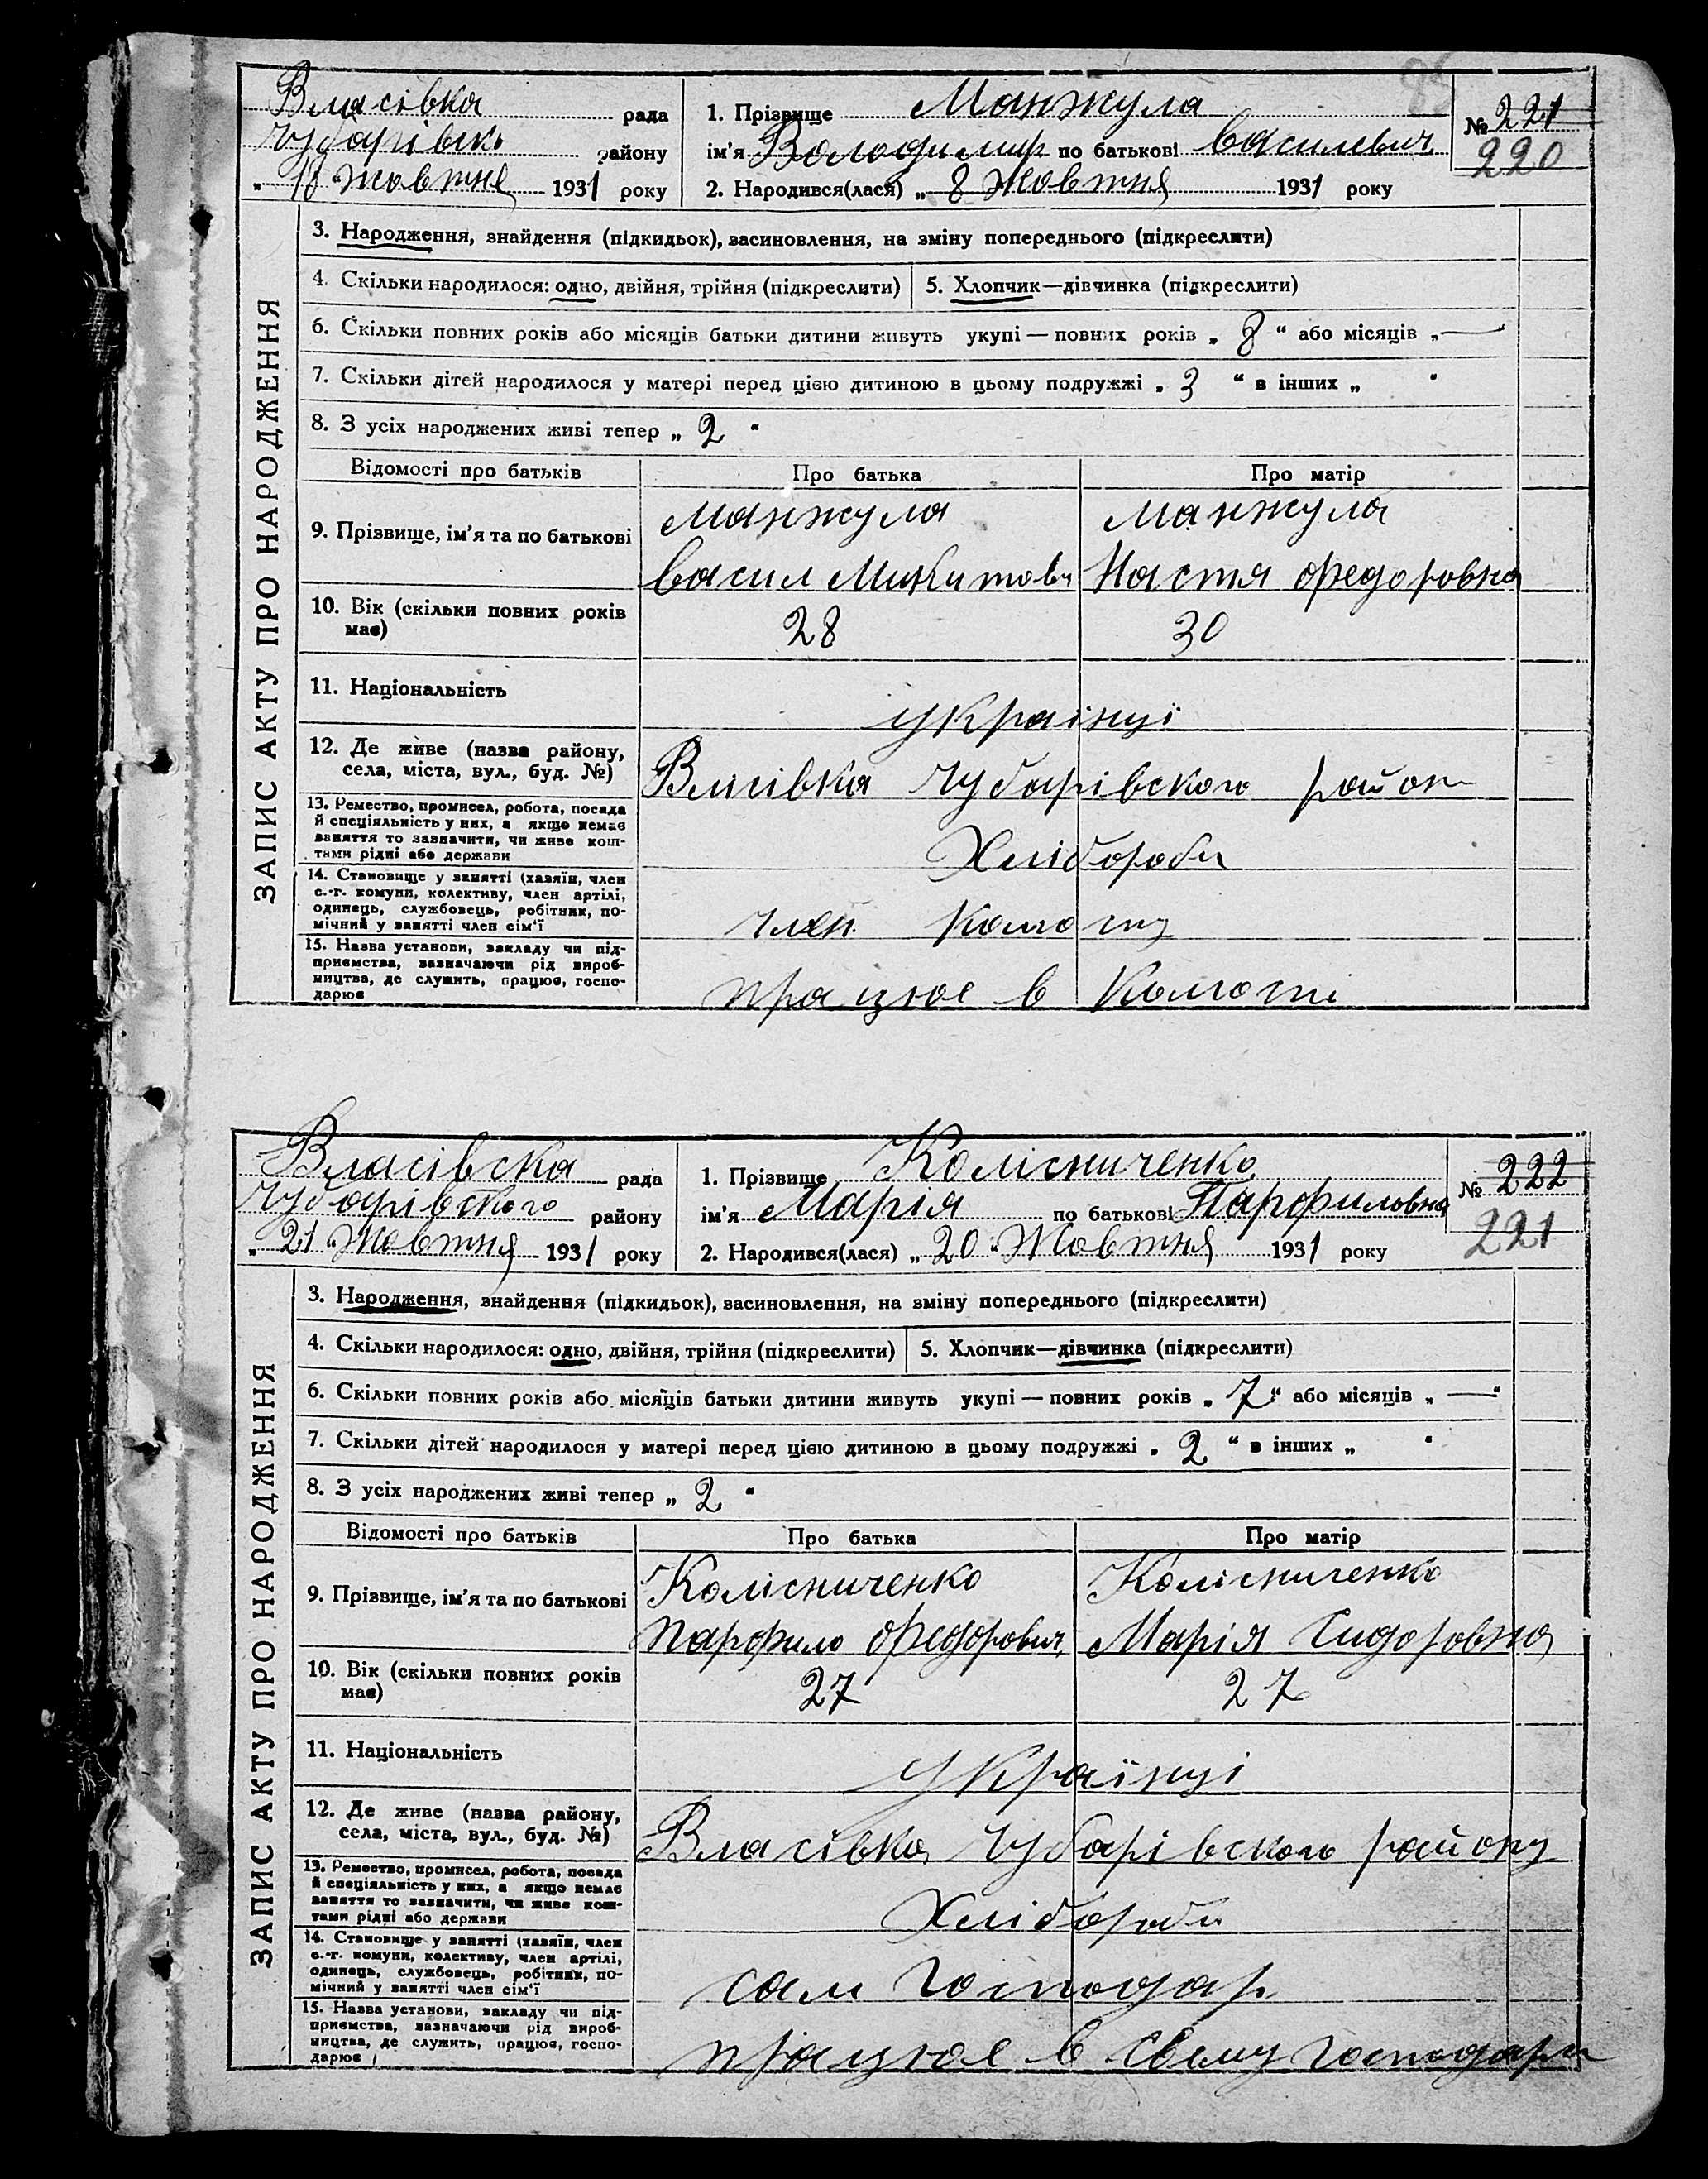 85
Власівка рада
Чубарівськ району
„18" Жовтня 1931 року
1. Прізвище Манжула
ім'я Володимир по батькові Василевич
2. Народився(лася) „8 Жовтня 1931 року
№ 221
220
ЗАПИС АКТУ ПРО НАРОДЖЕННЯ
3. Народження, знайдення (підкидьок), засиновлення, на зміну попереднього (підкреслити)
4. Скільки народилося: одно, двійня, трійня (підкреслити)
5. Хлопчик—дівчинка (підкреслити)
6. Скільки повних років або місяців батьки дитини живуть укупі — повних років „ 8 " або місяців „—
7. Скільки дітей народилося у матері перед цією дитиною в цьому подружжі „ 3 " в інших „ "
8. З усіх народжених живі тепер „ 2 "
Відомості про батьків Про батька Про матір
9. Прізвище, ім'я та по батькові
Манжула Манжула
Васил Микитович Настя Федоровна
10. Вік (скільки повних років має) 28 30
11. Національність українці
12. Де живе (назва району, села, міста, вул., буд. №) Власівка Чубарівского район
13. Ремество, промисел, робота, посада
й спеціяльність у них, а якщо немає
заняття то зазначити, чи живе кош-
тами рідні або держави
Хлібороби
14. Становище у занятті (хазяїн, член
с.-г. комуни, колективу, член артілі,
одинець, службовець, робітник, по-
мічний у занятті член сім'ї
член
15. Назва установи, закладу чи під-
приємства, зазначаючи рід вироб-
ництва, де служить, працює, госпо-
дарює
працює в
Власівска рада
Чубарівского району
„21" Жовтня 1931 року
1. Прізвище Колісниченко
ім'я Марія по батькові Парфиловна
2. Народився(лася) „20" Жовтня 1931 року
№ 222
221
ЗАПИС АКТУ ПРО НАРОДЖЕННЯ
3. Народження, знайдення (підкидьок), засиновлення, на зміну попереднього (підкреслити)
4. Скільки народилося: одно, двійня, трійня (підкреслити)
5. Хлопчик—дівчинка (підкреслити)
6. Скільки повних років або місяців батьки дитини живуть укупі — повних років „ 7 " або місяців „—"
7. Скільки дітей народилося у матері перед цією дитиною в цьому подружжі „ 2 " в інших „ "
8. З усіх народжених живі тепер „ 2 "
Відомості про батьків Про батька Про матір
9. Прізвище, ім'я та по батькові
Колісниченко Колісниченко
Парфило Федорович Марія Сидоровна
10. Вік (скільки повних років має) 27 27
11. Національність українці
12. Де живе (назва району, села, міста, вул., буд. №) Власівка Чубарівского району
13. Ремество, промисел, робота, посада
й спеціяльність у них, а якщо немає
заняття то зазначити, чи живе кош-
тами рідні або держави
Хлібороби
14. Становище у занятті (хазяїн, член
с.-г. комуни, колективу, член артілі,
одинець, службовець, робітник, по-
мічний у занятті член сім'ї
сам господар
15. Назва установи, закладу чи під-
приємства, зазначаючи рід вироб-
ництва, де служить, працює, госпо-
дарює
працює в свому господарі